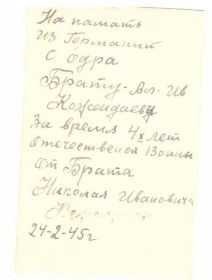 На память
из Германий
с Одра
Брату - Вл. Ив
Кожендаеву
За время 4х лет
отечественой Войны
от Брата
Николая Ивановича
24-2-45г